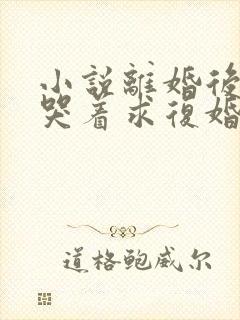 小説離婚後
哭着求復婚
道格鲍威尔